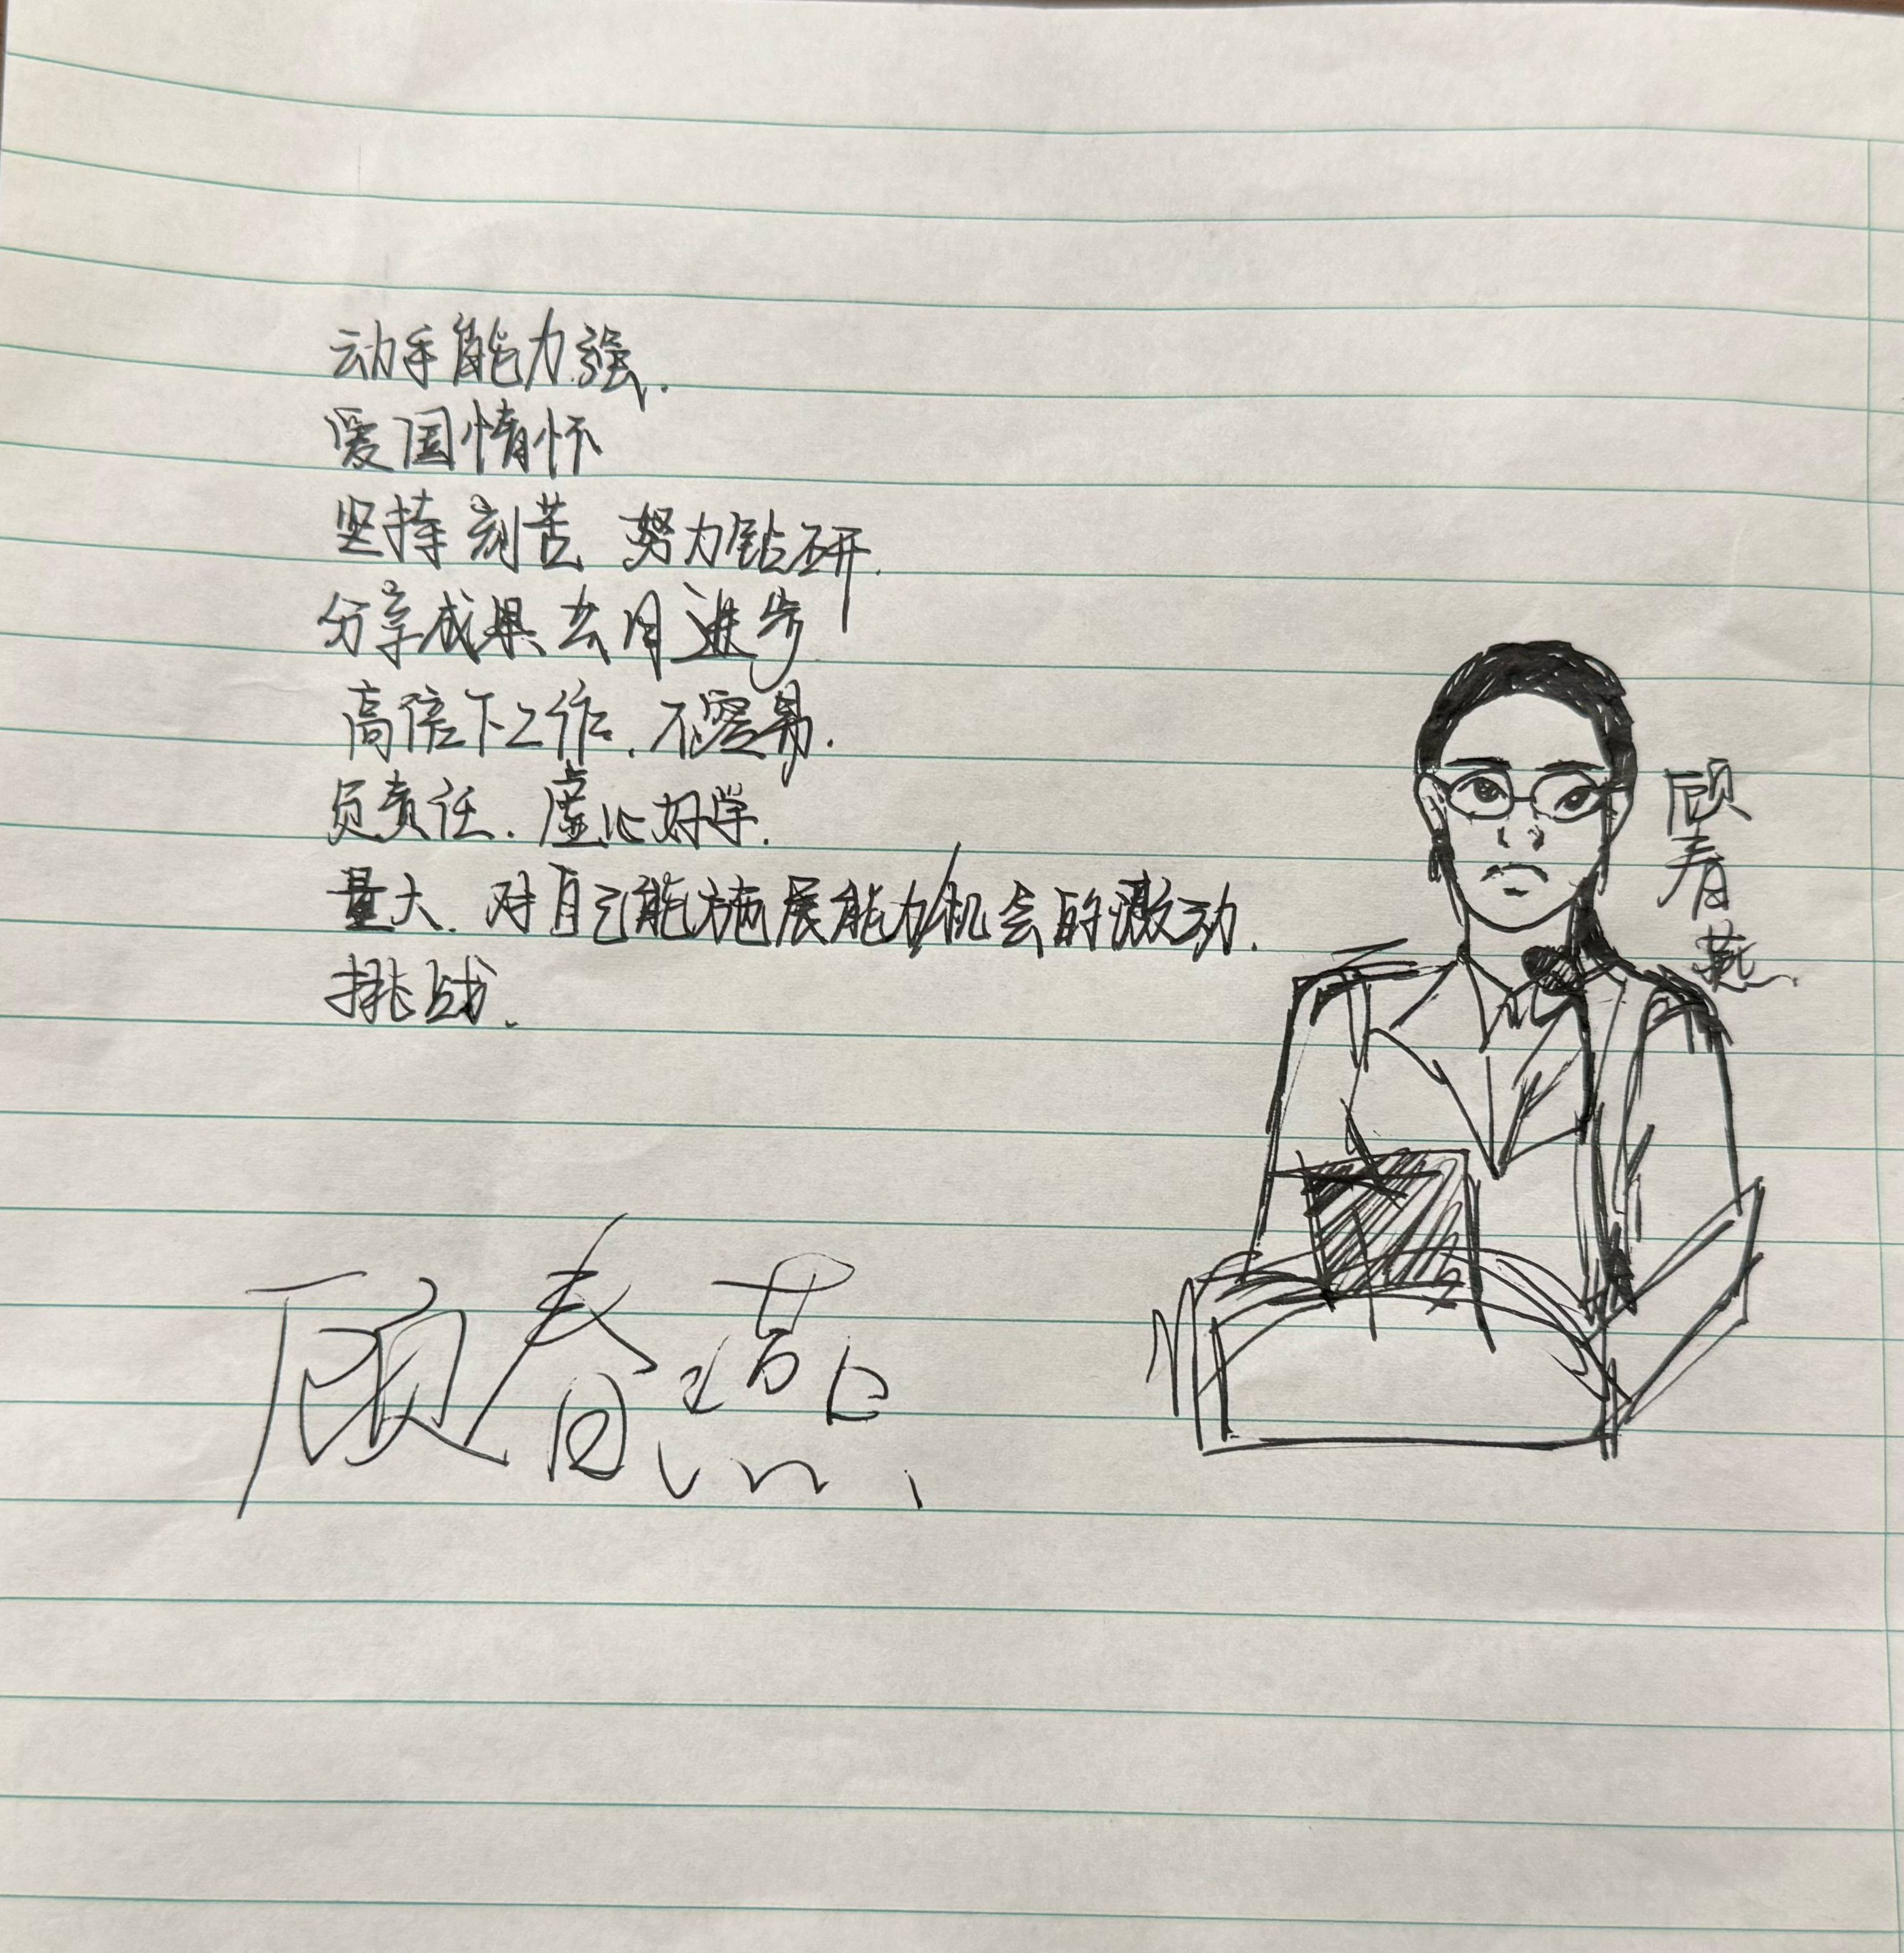 动手能力强.
爱国情怀
坚持刻苦 努力钻研.
分享成果 共同进步
高倍下工作. 不容易.
负责任. 虚心好学.
量大. 对自己能施展能力机会的激动.
挑战.
顾春燕
顾春燕.